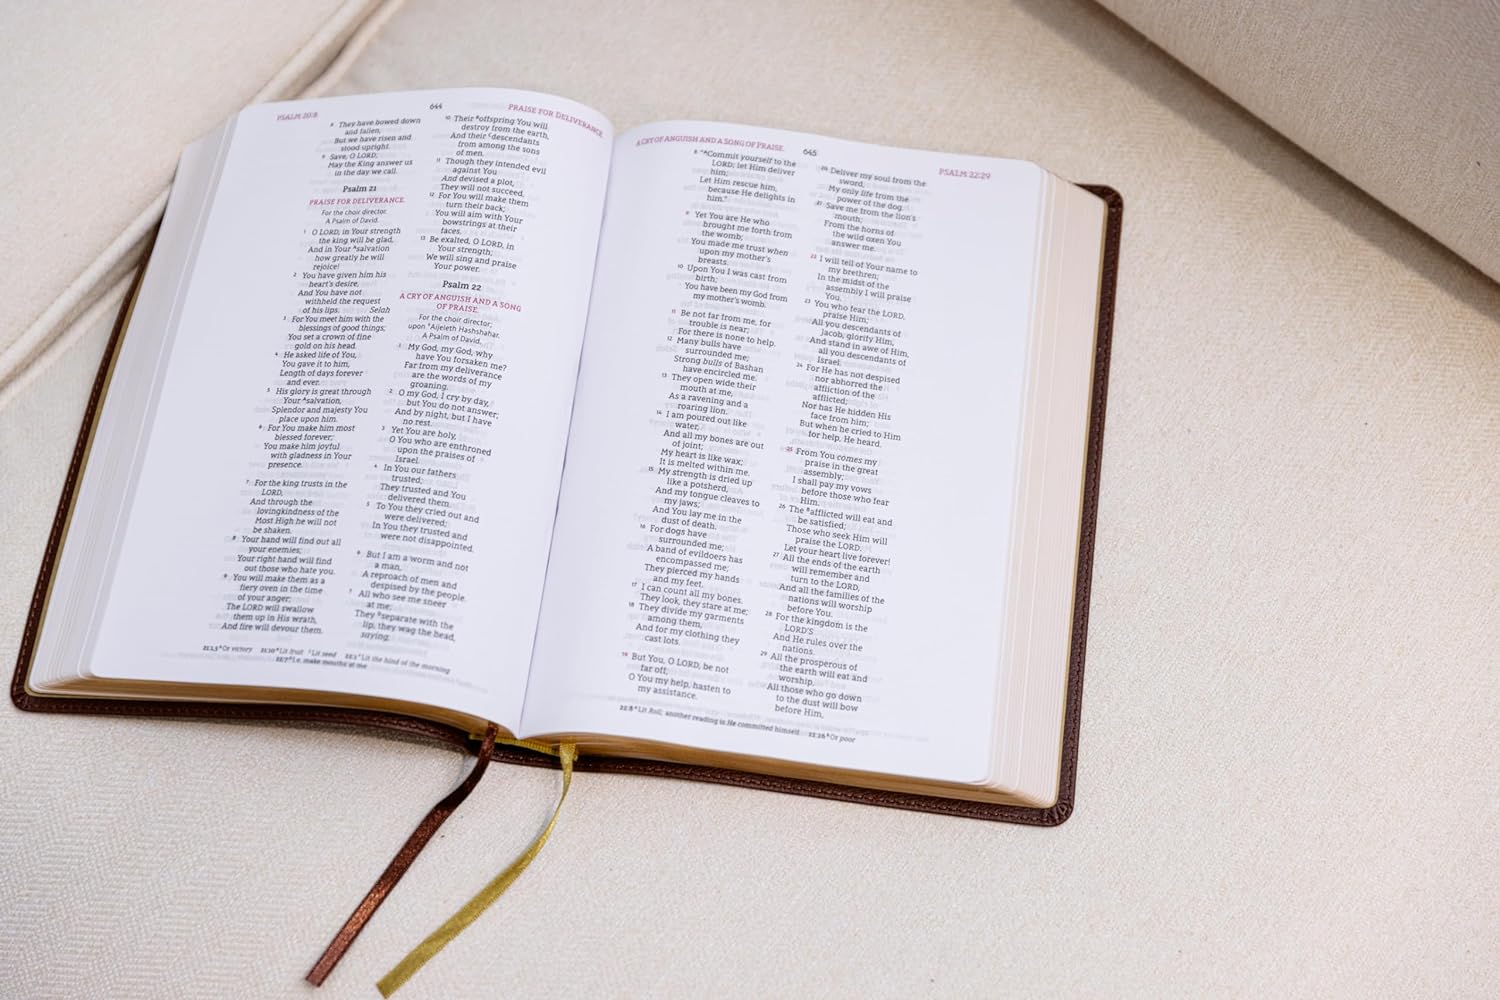 PSALM 20:8
644
PRAISE FOR DELIVERANCE
8 They have bowed down
and fallen,
But we have risen and
stood upright.
9 Save, O LORD;
May the King answer us
in the day we call.
Psalm 21
PRAISE FOR DELIVERANCE.
For the choir director.
A Psalm of David.
1 O LORD, in Your strength
the king will be glad,
And in Your ᴬsalvation
how greatly he will
rejoice!
2 You have given him his
heart's desire,
And You have not
withheld the request
of his lips. Selah
3 For You meet him with the
blessings of good things;
You set a crown of fine
gold on his head.
4 He asked life of You,
You gave it to him,
Length of days forever
and ever.
5 His glory is great through
Your ᴬsalvation,
Splendor and majesty You
place upon him.
6 For You make him most
blessed forever;
You make him joyful
with gladness in Your
presence.
7 For the king trusts in the
LORD,
And through the
lovingkindness of the
Most High he will not
be shaken.
8 Your hand will find out all
your enemies;
Your right hand will find
out those who hate you.
9 You will make them as a
fiery oven in the time
of your anger;
The LORD will swallow
them up in His wrath,
And fire will devour them.
10 Their ᴮoffspring You will
destroy from the earth,
And their ᶜdescendants
from among the sons
of men.
11 Though they intended evil
against You
And devised a plot,
They will not succeed.
12 For You will make them
turn their back;
You will aim with Your
bowstrings at their
faces.
13 Be exalted, O LORD, in
Your strength;
We will sing and praise
Your power.
Psalm 22
A CRY OF ANGUISH AND A SONG
OF PRAISE.
For the choir director;
upon ᴬAijeleth Hashshahar.
A Psalm of David.
1 My God, my God, why
have You forsaken me?
Far from my deliverance
are the words of my
groaning.
2 O my God, I cry by day,
but You do not answer;
And by night, but I have
no rest.
3 Yet You are holy,
O You who are enthroned
upon the praises of
Israel.
4 In You our fathers
trusted;
They trusted and You
delivered them.
5 To You they cried out and
were delivered;
In You they trusted and
were not disappointed.
6 But I am a worm and not
a man,
A reproach of men and
despised by the people.
7 All who see me sneer
at me;
They ᴬseparate with the
lip, they wag the head,
saying,
21:1,5 ᴬOr victory 21:10 ᴮLit fruit ᶜLit seed 22:1 ᴬLit the hind of the morning
22:7 ᴬI.e. make mouths at me
A CRY OF ANGUISH AND A SONG OF PRAISE.
645
PSALM 22:29
8 "ᴬCommit yourself to the
LORD; let Him deliver
him;
Let Him rescue him,
because He delights in
him."
9 Yet You are He who
brought me forth from
the womb;
You made me trust when
upon my mother's
breasts.
10 Upon You I was cast from
birth;
You have been my God from
my mother's womb.
11 Be not far from me, for
trouble is near;
For there is none to help.
12 Many bulls have
surrounded me;
Strong bulls of Bashan
have encircled me.
13 They open wide their
mouth at me,
As a ravening and a
roaring lion.
14 I am poured out like
water,
And all my bones are out
of joint;
My heart is like wax;
It is melted within me.
15 My strength is dried up
like a potsherd,
And my tongue cleaves to
my jaws;
And You lay me in the
dust of death.
16 For dogs have
surrounded me;
A band of evildoers has
encompassed me;
They pierced my hands
and my feet.
17 I can count all my bones.
They look, they stare at me;
18 They divide my garments
among them,
And for my clothing they
cast lots.
19 But You, O LORD, be not
far off;
O You my help, hasten to
my assistance.
20 Deliver my soul from the
sword,
My only life from the
power of the dog.
21 Save me from the lion's
mouth;
From the horns of
the wild oxen You
answer me.
22 I will tell of Your name to
my brethren;
In the midst of the
assembly I will praise
You.
23 You who fear the LORD,
praise Him;
All you descendants of
Jacob, glorify Him,
And stand in awe of Him,
all you descendants of
Israel.
24 For He has not despised
nor abhorred the
affliction of the
afflicted;
Nor has He hidden His
face from him;
But when he cried to Him
for help, He heard.
25 From You comes my
praise in the great
assembly;
I shall pay my vows
before those who fear
Him.
26 The ᴬafflicted will eat and
be satisfied;
Those who seek Him will
praise the LORD.
Let your heart live forever!
27 All the ends of the earth
will remember and
turn to the LORD,
And all the families of the
nations will worship
before You.
28 For the kingdom is the
LORD'S
And He rules over the
nations.
29 All the prosperous of
the earth will eat and
worship,
All those who go down
to the dust will bow
before Him,
22:8 ᴬLit Roll; another reading is He committed himself 22:26 ᴬOr poor